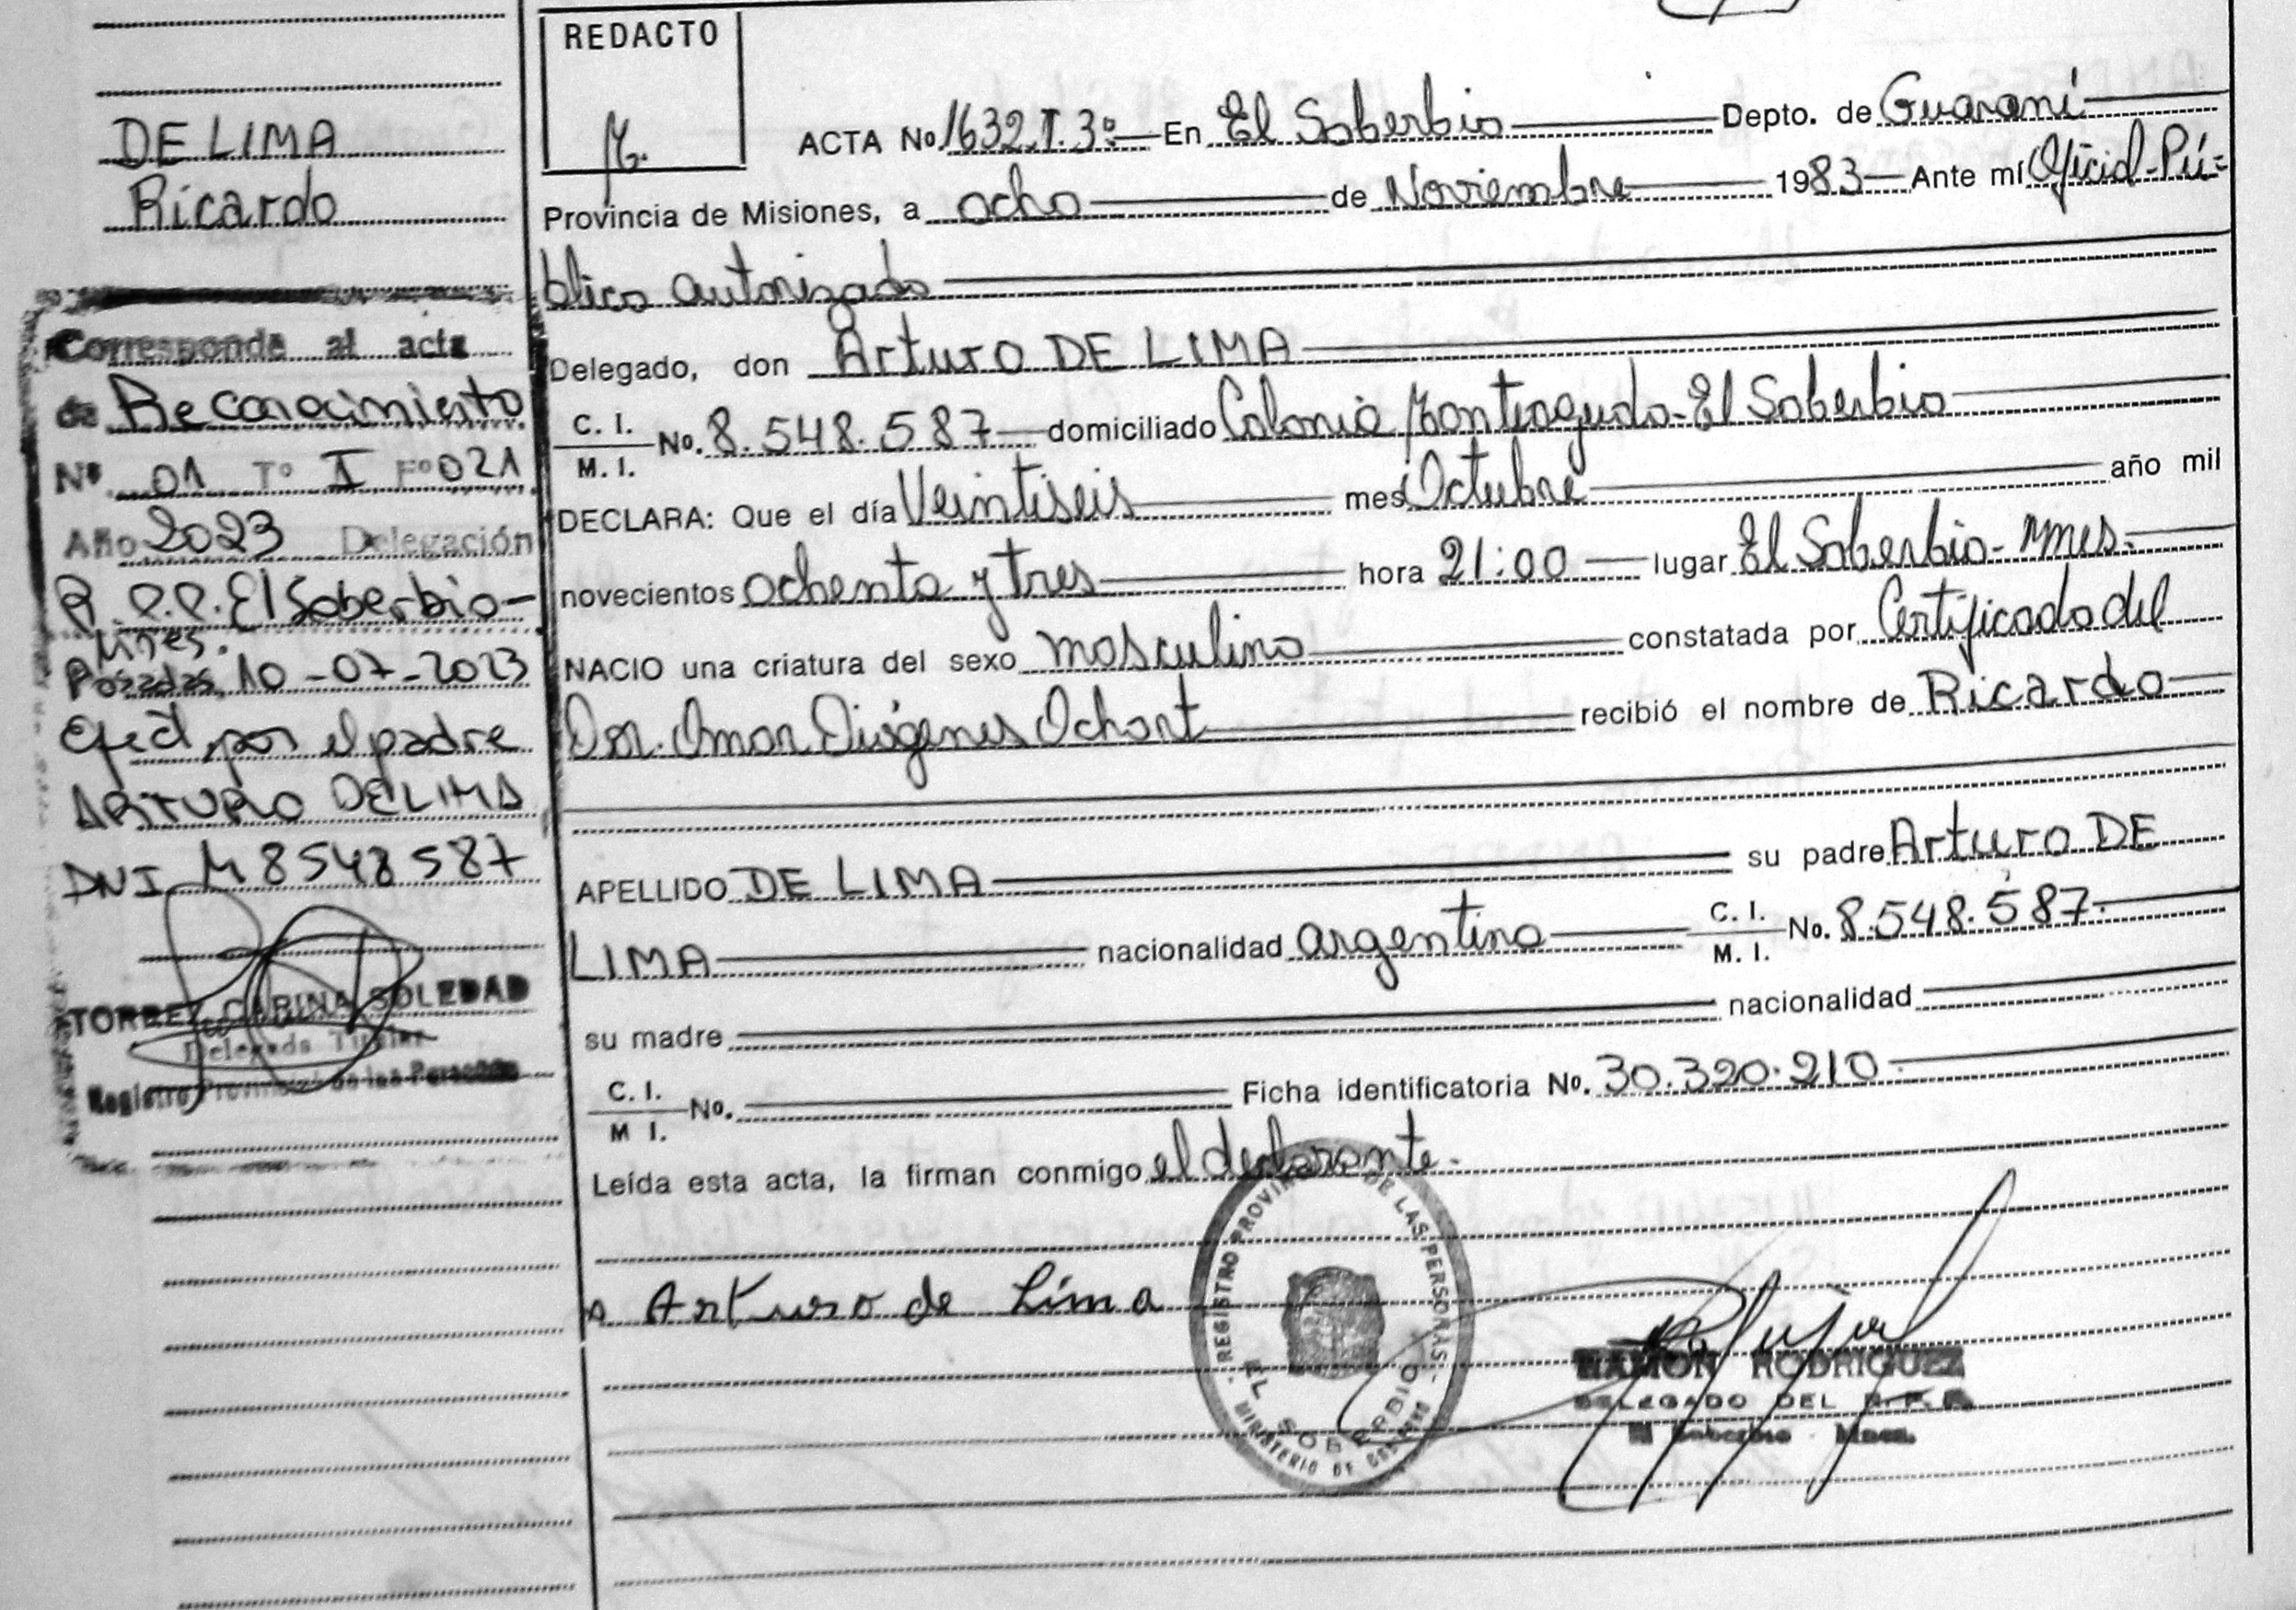 DE LIMA
Ricardo
Corresponde al acta
de Reconocimiento
Nº 01 Tº I Fº 021
Año 2023 Delegación
R.P.P. El Soberbio-
Mnes.
Posadas, 10-07-2023
Efect. por el padre
ARTURO DE LIMA
DNI M 8548587
TORRES CARINA SOLEDAD
Delegada Titular
Registro Provincial de las Personas
REDACTO
ACTA No 1632.T.3º En El Soberbio Depto. de Guaraní
Provincia de Misiones, a ocho de Noviembre 1983 Ante mí Oficial-Pú=
blico autorizado
Delegado, don Arturo DE LIMA
C. I.
M. I.
No. 8.548.587 domiciliado Colonia Monteagudo-El Soberbio
DECLARA: Que el día Veintiseis mes Octubre año mil
novecientos ochenta y tres hora 21:00 lugar El Soberbio-Mnes.
NACIO una criatura del sexo masculino constatada por Certificado del
Dr. Omar Diógenes Ochart recibió el nombre de Ricardo
APELLIDO DE LIMA su padre Arturo DE
LIMA nacionalidad argentino C. I. M. I. No. 8.548.587.
su madre nacionalidad
C. I.
M I.
No. Ficha identificatoria No. 30.320.210
Leída esta acta, la firman conmigo el declarante.
Arturo de Lima
REGISTRO PROVINCIAL DE LAS PERSONAS
EL SOBERBIO
MINISTERIO DE GOBIERNO
RAMON RODRIGUEZ
DELEGADO DEL R.P.P.
El Soberbio Mnes.